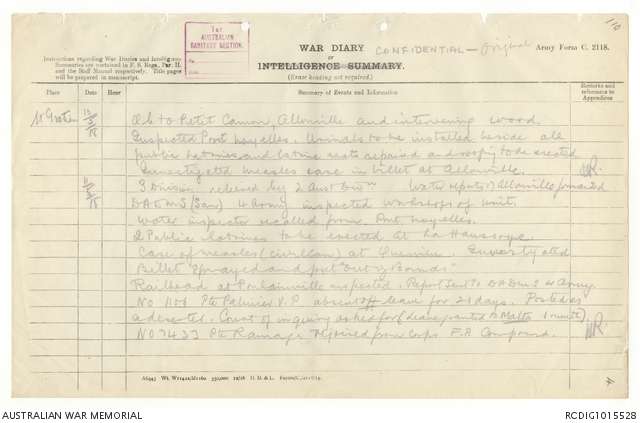 110
1st
AUSTRALIAN
SANITARY SECTION.
WAR DIARY CONFIDENTIAL — Original Army Form C. 2118.
or
INTELLIGENCE SUMMARY.
(Erase heading not required.)
Instructions regarding War Diaries and Intelligence
Summaries are contained in F. S. Regs., Part II.
and the Staff Manual respectively. Title pages
will be prepared in manuscript.
Place Date Hour Summary of Events and Information Remarks and
references to
Appendices
St Gratien to Petit Camon, Allonville and intervening wood.
Inspected Pont Noyelles. Urinals to be installed beside all
public latrines and latrine seats repaired and roofing to be erected
Investigated measles case in billet at Allonville.
3 Division relieved by 2 Aust Divn Water reports Allonville
DADMS (San) 4 Army inspected workshops of Unit.
Water inspector recalled from Pont Noyelles.
2 Public latrines to be erected at La Houssoye.
Case of measles (civilian) at Querrieu. Investigated
Billet sprayed and put "Out of Bounds"
Railhead at Poulainville inspected. Report sent to DADMS 4 Army.
No 1108 Pte Palmer V. P absent off leave for 21 days. Posted as
a deserter. Court of inquiry asked for (leave granted to Malta
No 7433 Pte Ramage rejoined from Corps F.P. Compound.
AUSTRALIAN WAR MEMORIAL RCDIG1015528